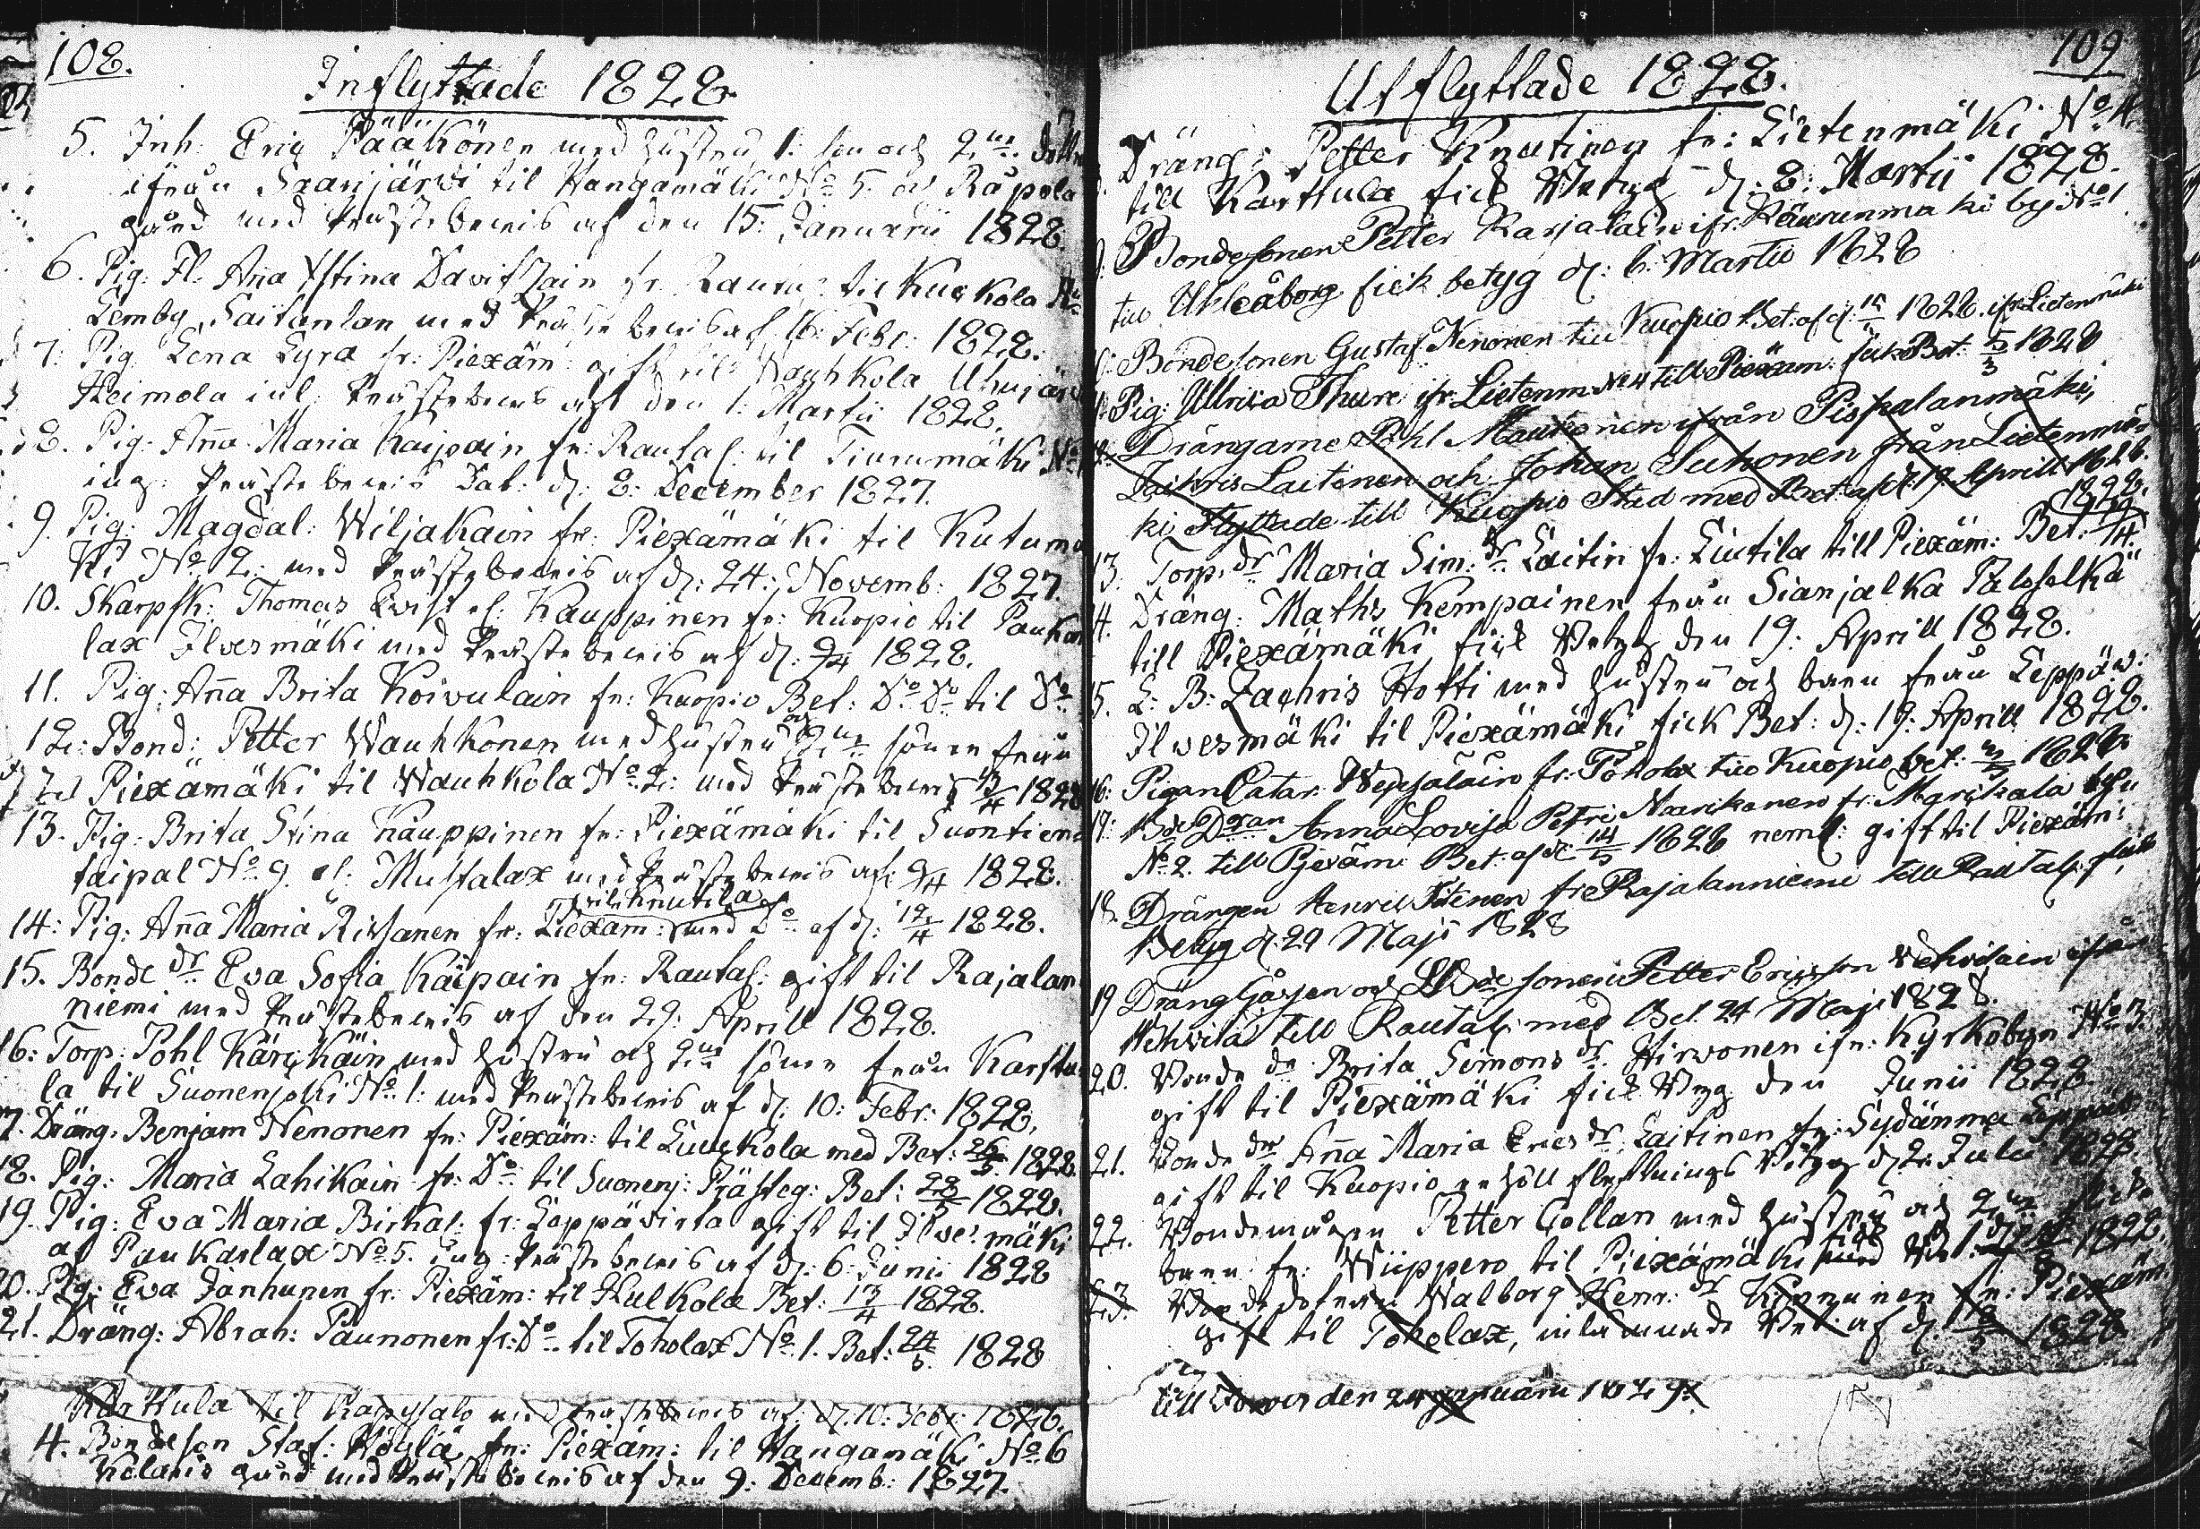 108.
Inflyttade 1828.
5. Inh: Eric Pääkönen med hustru 1: son och 2ne
ifrån Saarijärvi til Hangamäki No 5. Räpola
gård med Prästebevis af den 15: Januarii 1828.
6. Pig: Fl. Aña Stina Davidzain fr. Rautal: til Kuckola
Lemby Saitanlax med Prästebevis af 16: Febr: 1828.
7: Pig: Lena Lyra fr: Piexäm: gift til Wauhkola
Heimola inl: Prästebevis af den 1: Martii 1828.
8. Pig: Aña Maria Kaipain fr: Rautal: til Tiurumäki No
ing: Prästebevis Dat: d: 8: December 1827.
9. Pig: Magdal: Wiljakain fr: Piexämäki til Kutuma
ki No 2: med Prästebevis af d: 24: Novemb: 1827.
10. Skarpsk: Thomas Qvist el: Kauppinen fr: Kuopio til Paukar
lax Ilvesmäki med Prästebevis af d: 9/4 1828.
11. Pig: Aña Brita Koivulain fr: Kuopio Bet: Do Do til Do
12: Bond: Petter Wauhkonen med hustru och 2ne söner från
Piexämäki til Wauhkola No 2: med Prästebevis 13/4 1828
13. Pig: Brita Stina Kauppinen fr: Piexämäki til Suontiene
taipal No 9. el: Mustalax med Prästebevis af: 9/4 1828.
til Knutila
14: Pig: Aña Maria Rissanen fr: Piexäm: med Do af d: 12/4 1828.
15. Bonde dr Eva Sofia Kaipain fr: Rautal: gift til Rajalan
niemi med Prästebevis af den 29: Aprill 1828.
16: Torp: Pohl Kärckäin med hustru och 2ne söner från Karttu
la til Suonenjoki No 1: med Prästebevis af d: 10: Febr: 1828,
17. Dräng: Benjam Nenonen fr: Piexäm: til Luuckola med Bet: 26/5. 1828
18. Pig: Maria Lahikain fr: Do til Suonenj: Prästeg: Bet: 28/5 1828.
19. Pig: Eva Maria Birkal: fr: Leppävirta gift til Ilvesmäki
af Paukarlax No 5. ing: Prästebevis af d: 6: Junii 1828
20. Pig: Eva Janhunen fr: Piexäm: til Kulkola Bet: 13/4 1828.
21. Dräng: Abrah: Paunonen fr: Do til Toholax No 1. Bet: 24/5. 1828
Karttula til Käpysalo med Prästebevis af: d: 10: Febr: 1828.
4. Bondeson Staf: Höglä fr: Piexäm: til Hangamäki No 6
Kolaris gård med Prästebevis af den 9: Decemb: 1827.
109
Utflyttade 1828.
Dräng: Petter Knutinen fr: Lietenmäki No 4
till Karttula fick Betyg d: 8: Martii 1828.
Bondesonen Petter Karjalain ifr. Käurunmäki by No 1
till Uhleåborg fick betyg d: 6: Martii 1828
Bondesonen Gustaf Nenonen till Kuopio Bet: af d: 1828. ifr Lietenmäki
Pig: Ullrica Thure ifr Lietenm No 4 till Piexäm: fick Bet: 5/3 1828
Drängarne Pohl Mautonen ifrån Pispalanmäki,
Zachris Laitinen och Johan Suhonen från Lietenmä
ki Flyttade till Kuopio Stad med Bet: af d: 19 Aprill 1828.
13. Torp. dr Maria Sim: dr Laitin fr: Liutila till Piexäm: Bet: 1828.
14. Dräng: Maths Kempainen från Sianjalka
till Piexämäki fick Betyg den 19: Aprill 1828.
15. L: B: Zachris Hotti med hustru och barn från Leppäv:
Ilvesmäki til Piexämäki fick Bet: d: 19: Aprill 1828.
16: Pigan Catar: Wepsäläin fr: Toholax till Kuopio bet: 1828
17: Anna Lovisa Petri Narikanen fr. Markala by
No 2. till Piexäm: Bet: af d: 14/5 1828 neml: gift til Piexäm:
18. Drängen Henric Itenen fr: Rajalanniemi till Rautal: fick
Betyg d. 29 Maji 1828
19 Dräng Gåssen och sonen Petter Ericsson Wehvilain ifrån
Wehvilä till Rautal: med Bet. 24 Maji 1828.
20. Bonde dr Brita Simons dr Hirvonen ifr: Kyrkobyn No 3.
gift til Piexämäki fick Btyg den Junii 1828.
21. Bonde dr Aña Maria Erics dr Laitinen fr: Sydänma
gift til Kuopio erhöll flyttnings Betyg d: 2: Julii 1828
22. Bondemågen Petter Collan med hustru och 2ne
barn fr: Wiippero til Piexämäki fick 1828.
23. Bonde dotern Walborg Henr: dr Kinnunen fr: Piexäm:
gift til Toholax, inlämnade Bet: af d. 1828
till den 24 Januarii 1829.